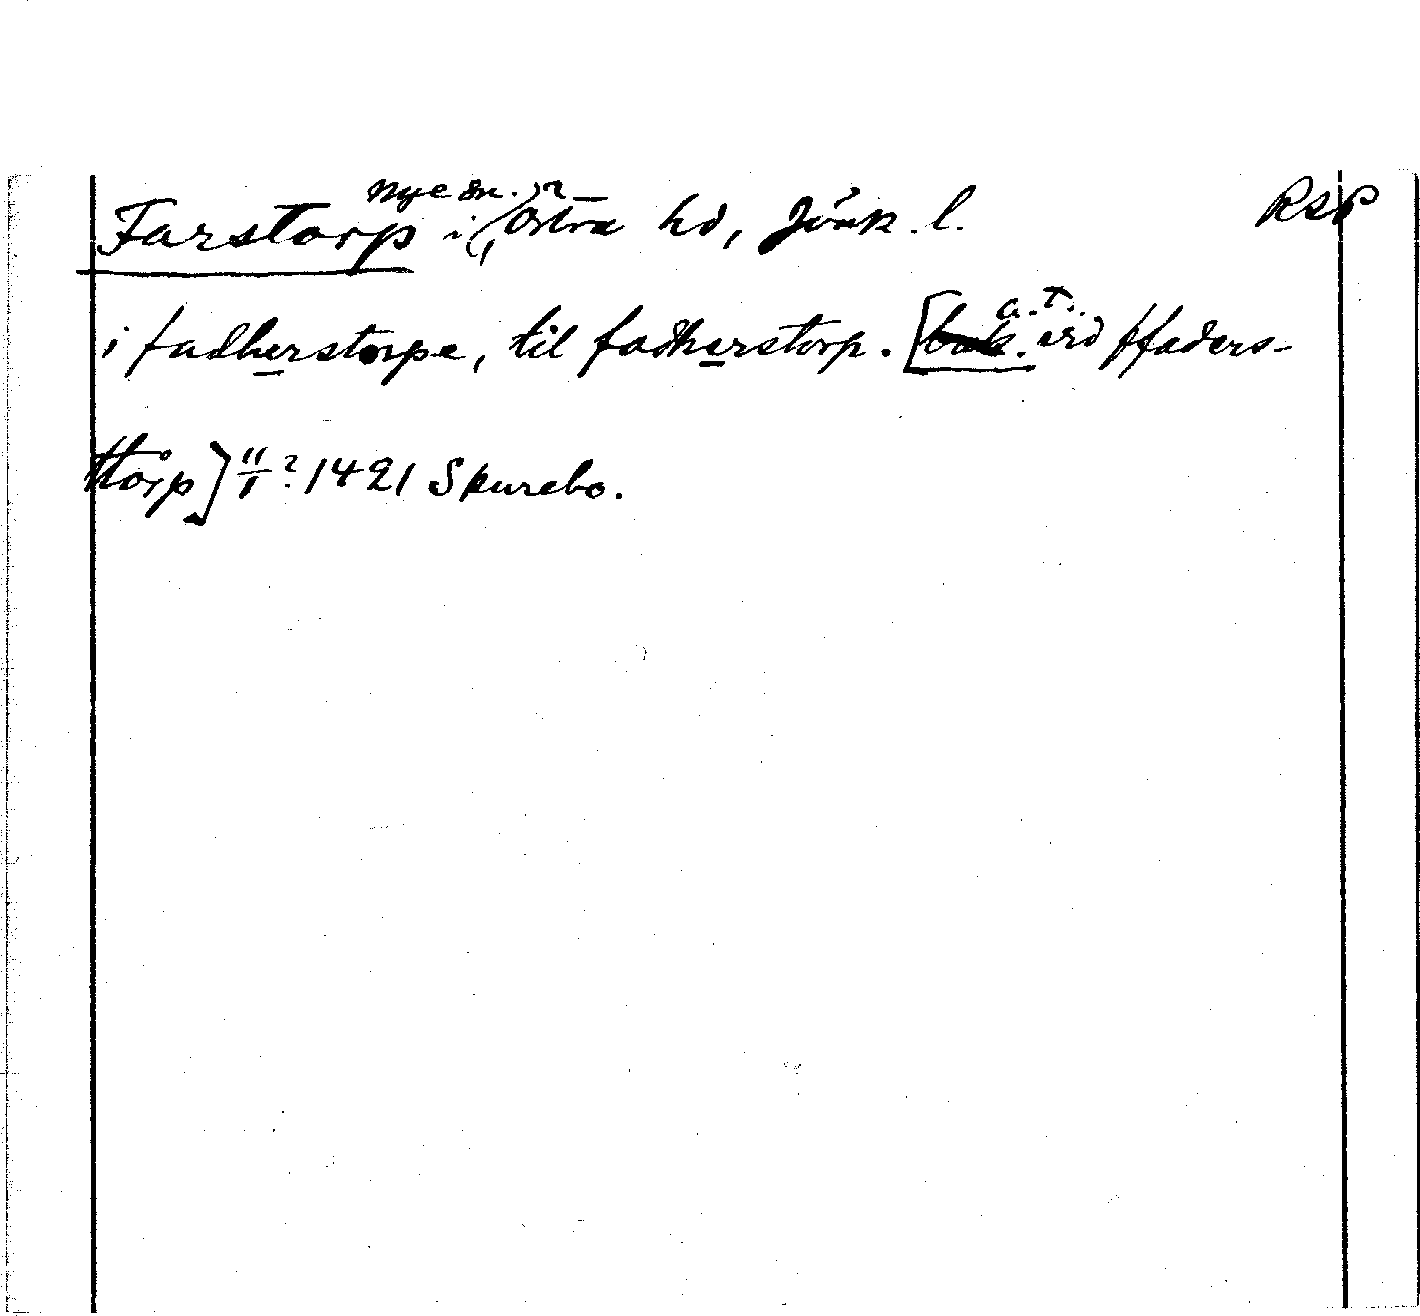 Farstorp i Nye sn. Östra hd, Jönk. l. RSP
i fadherstorpe, til fadherstorp. [a.t. ffaders-
ttorp] 11/1 ? 1421 Skurebo.